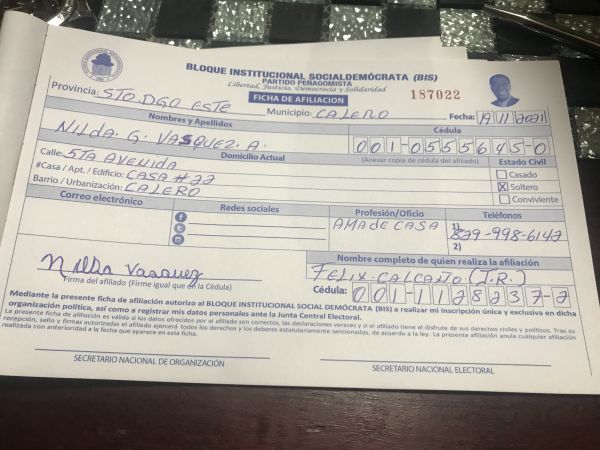 BLOQUE INSTITUCIONAL SOCIALDEMÓCRATA (BIS)
PARTIDO PEÑAGOMISTA
Libertad, Justicia, Democracia y Solidaridad
FICHA DE AFILIACION
187022
Provincia: STO. DGO ESTE Municipio: CALERO Fecha: 19/11/2021
Nombres y Apellidos Cédula
NILDA. G. VASQUEZ. A. 001-0555645-0
Domicilio Actual (Anexar copia de cédula del afiliado) Estado Civil
Calle: 5TA AVENIDA
#Casa / Apt. / Edificio: CASA #22
Barrio / Urbanización: CALERO
Casado
X Soltero
Conviviente
Correo electrónico Redes sociales Profesión/Oficio Teléfonos
AMA de CASA 1) 829-998-6142
2)
Nilda Vasquez
Firma del afiliado (Firme igual que en la Cédula)
Nombre completo de quien realiza la afiliación
FELIX. CALCAÑO (J.R.)
Cédula: 001-1128237-2
Mediante la presente ficha de afiliación autorizo al BLOQUE INSTITUCIONAL SOCIAL DEMÓCRATA (BIS) a realizar mi inscripción única y exclusiva en dicha
organización política, así como a registrar mis datos personales ante la Junta Central Electoral.
La presente ficha de afiliación es válida si los datos ofrecidos por el afiliado son correctos, las declaraciones veraces y si el afiliado tiene el disfrute de sus derechos civiles y políticos. Tras su
recepción, sello y firmas autorizadas el afiliado ejercerá todos los derechos y los deberes estatutariamente sancionados, de acuerdo a la ley. La presente afiliación anula cualquier afiliación
realizada con anterioridad a la fecha que aparece en esta ficha.
SECRETARIO NACIONAL DE ORGANIZACIÓN SECRETARIO NACIONAL ELECTORAL